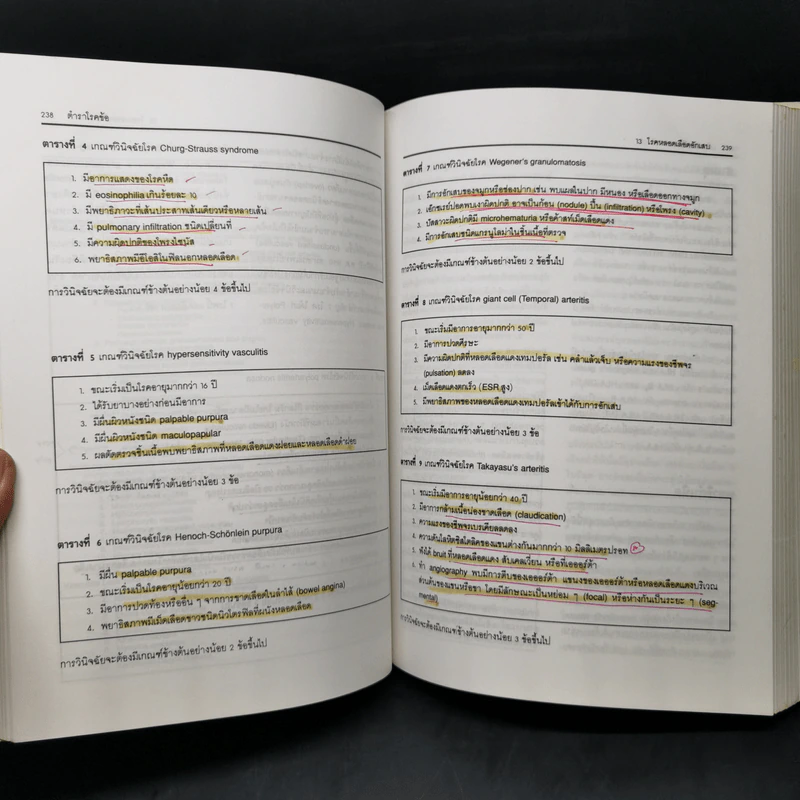 238 ตำราโรคข้อ
ตารางที่ 4 เกณฑ์วินิจฉัยโรค Churg-Strauss syndrome
1. มีอาการแสดงของโรคหืด
2. มี eosinophilia เกินร้อยละ 10
3. มีพยาธิภาวะที่เส้นประสาทเส้นเดียวหรือหลายเส้น
4. มี pulmonary infiltration ชนิดเปลี่ยนที่
5. มีความผิดปกติของโพรงไซนัส
6. พยาธิสภาพมีอีโอสิโนฟิลนอกหลอดเลือด
การวินิจฉัยจะต้องมีเกณฑ์ข้างต้นอย่างน้อย 4 ข้อขึ้นไป
ตารางที่ 5 เกณฑ์วินิจฉัยโรค hypersensitivity vasculitis
1. ขณะเริ่มเป็นโรคอายุมากกว่า 16 ปี
2. ได้รับยาบางอย่างก่อนมีอาการ
3. มีผื่นผิวหนังชนิด palpable purpura
4. มีผื่นผิวหนังชนิด maculopapular
5. ผลตัดตรวจชิ้นเนื้อพบพยาธิสภาพที่หลอดเลือดแดงฝอยและหลอดเลือดดำฝอย
การวินิจฉัยจะต้องมีเกณฑ์ข้างต้นอย่างน้อย 3 ข้อ
ตารางที่ 6 เกณฑ์วินิจฉัยโรค Henoch-Schönlein purpura
1. มีผื่น palpable purpura
2. ขณะเริ่มเป็นโรคอายุน้อยกว่า 20 ปี
3. มีอาการปวดท้องหรืออื่น ๆ จากการขาดเลือดในลำไส้ (bowel angina)
4. พยาธิสภาพมีเม็ดเลือดขาวชนิดนิวโตรฟิลที่ผนังหลอดเลือด
การวินิจฉัยจะต้องมีเกณฑ์ข้างต้นอย่างน้อย 2 ข้อขึ้นไป
13 โรคหลอดเลือดอักเสบ 239
ตารางที่ 7 เกณฑ์วินิจฉัยโรค Wegener's granulomatosis
1. มีการอักเสบของจมูกหรือช่องปาก เช่น พบแผลในปาก มีหนอง หรือเลือดออกทางจมูก
2. เอ๊กซเรย์ปอดพบเงาผิดปกติ อาจเป็นก้อน (nodule) ปื้น (infiltration) หรือโพรง (cavity)
3. ปัสสาวะผิดปกติมี microhematuria หรือคาสท์เม็ดเลือดแดง
4. มีการอักเสบชนิดแกรนูโลม่าในชิ้นเนื้อที่ตรวจ
การวินิจฉัยจะต้องมีเกณฑ์ข้างต้นอย่างน้อย 2 ข้อขึ้นไป
ตารางที่ 8 เกณฑ์วินิจฉัยโรค giant cell (Temporal) arteritis
1. ขณะเริ่มมีอาการอายุมากกว่า 50 ปี
2. มีอาการปวดศีรษะ
3. มีความผิดปกติที่หลอดเลือดแดงเทมปอรัล เช่น คลำแล้วเจ็บ หรือความแรงของชีพจร
(pulsation) ลดลง
4. เม็ดเลือดแดงตกเร็ว (ESR สูง)
5. มีพยาธิสภาพของหลอดเลือดแดงเทมปอรัลเข้าได้กับการอักเสบ
การวินิจฉัยจะต้องมีเกณฑ์ข้างต้นอย่างน้อย 3 ข้อ
ตารางที่ 9 เกณฑ์วินิจฉัยโรค Takayasu's arteritis
1. ขณะเริ่มมีอาการอายุน้อยกว่า 40 ปี
2. มีอาการกล้ามเนื้อน่องขาดเลือด (claudication)
3. ความแรงของชีพจรเบรเคียลลดลง
4. ความดันโลหิตซิสโตลิคของแขนต่างกันมากกว่า 10 มิลลิเมตรปรอท
5. ฟังได้ bruit ที่หลอดเลือดแดง สับเคลเวียน หรือที่เอออร์ต้า
6. ทำ angiography พบมีการตีบของเอออร์ต้า แขนงของเอออร์ต้าหรือหลอดเลือดแดงบริเวณ
ส่วนต้นของแขนหรือขา โดยมีลักษณะเป็นหย่อม ๆ (focal) หรือห่างกันเป็นระยะ ๆ (seg-
mental)
การวินิจฉัยจะต้องมีเกณฑ์ข้างต้นอย่างน้อย 3 ข้อขึ้นไป